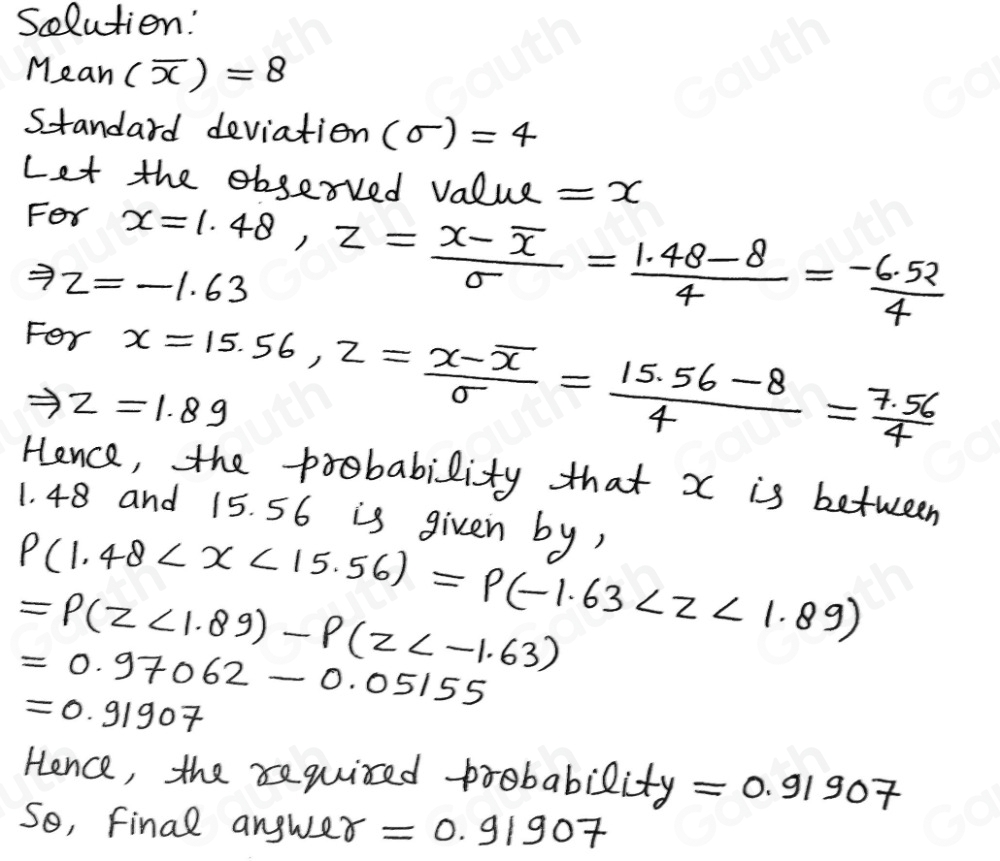 Solution:
Mean (x̅) = 8
Standard deviation (σ) = 4
Let the observed value = x
For x = 1.48 , z = (x - x̅)/σ = (1.48 - 8)/4 = -6.52/4
⇒ z = -1.63
For x = 15.56 , z = (x - x̅)/σ = (15.56 - 8)/4 = 7.56/4
⇒ z = 1.89
Hence, the probability that x is between
1.48 and 15.56 is given by,
P(1.48 < x < 15.56) = P(-1.63 < z < 1.89)
= P(z < 1.89) - P(z < -1.63)
= 0.97062 - 0.05155
= 0.91907
Hence, the required probability = 0.91907
So, Final answer = 0.91907